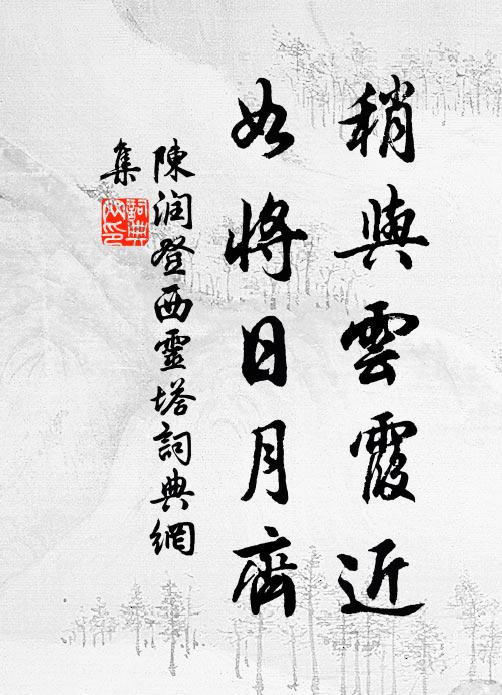 稍與雲霞近
如將日月齊
陳润登西靈塔詞典網
集
詞典